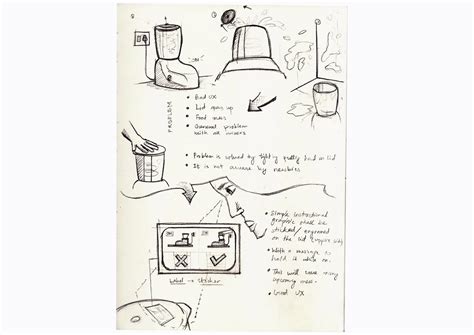 "ON"
PROBLEM
• Bad UX
• Lid opens up
• Food mess
• General problem
with all mixers
• Problem is solved by tightly putting hand on lid
• It is not aware by newbies
• Simple instructional
graphic plate be
sticked / engraved
on the lid
• With a message to
hold it while on.
• This will save many
upcoming mess.
• Good UX
Label → sticker